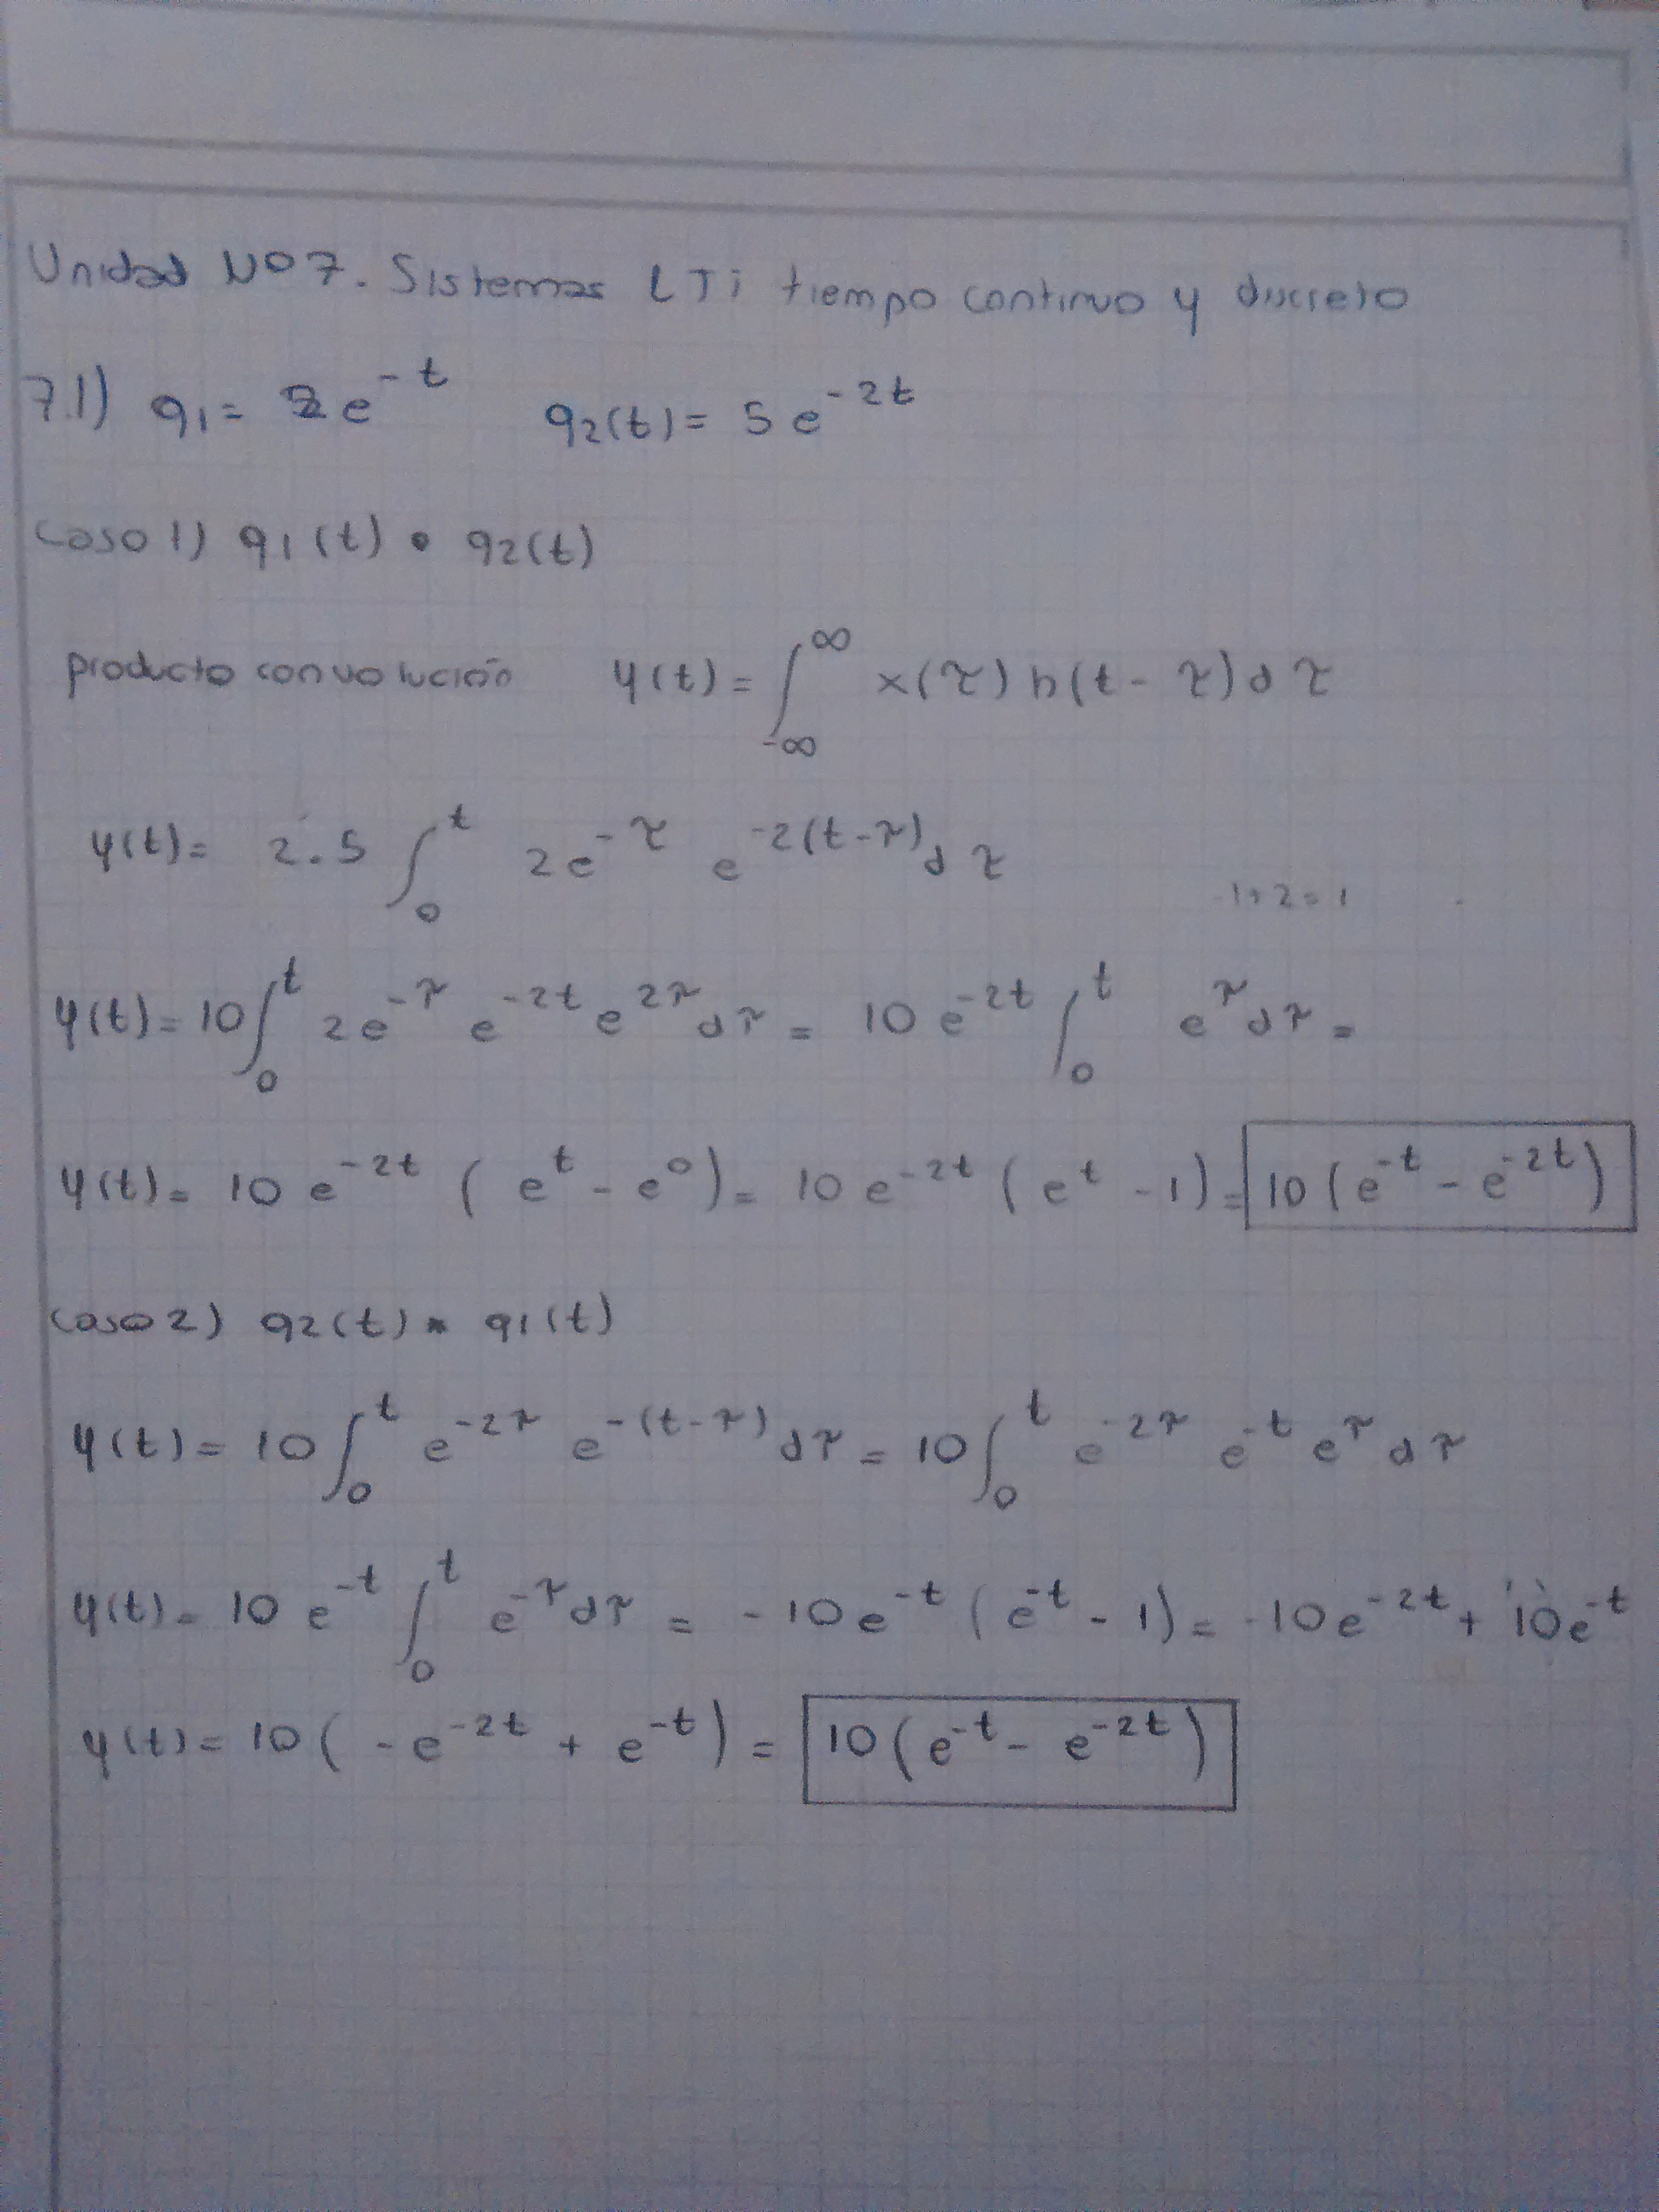 Unidad Nº 7. Sistemas LTi tiempo continuo y discreto
7.1) q₁ = 2e^{-t}   q₂(t) = 5e^{-2t}
Caso 1) q₁(t) • q₂(t)
producto convolución   y(t) = ∫_{-∞}^{∞} x(τ) h(t - τ) dτ
y(t) = 2.5 ∫_0^t 2e^{-τ} e^{-2(t-τ)} dτ
-1+2=1
y(t) = 10 ∫_0^t 2e^{-τ} e^{-2t} e^{2τ} dτ = 10 e^{-2t} ∫_0^t e^{τ} dτ =
y(t) = 10 e^{-2t} (e^t - e^0) = 10 e^{-2t} (e^t - 1) = 10 (e^{-t} - e^{-2t})
Caso 2) q₂(t) * q₁(t)
y(t) = 10 ∫_0^t e^{-2τ} e^{-(t-τ)} dτ = 10 ∫_0^t e^{-2τ} e^{-t} e^{τ} dτ
y(t) = 10 e^{-t} ∫_0^t e^{-τ} dτ = -10e^{-t} (e^{-t} - 1) = -10e^{-2t} + 10e^{-t}
y(t) = 10 (-e^{-2t} + e^{-t}) = 10 (e^{-t} - e^{-2t})